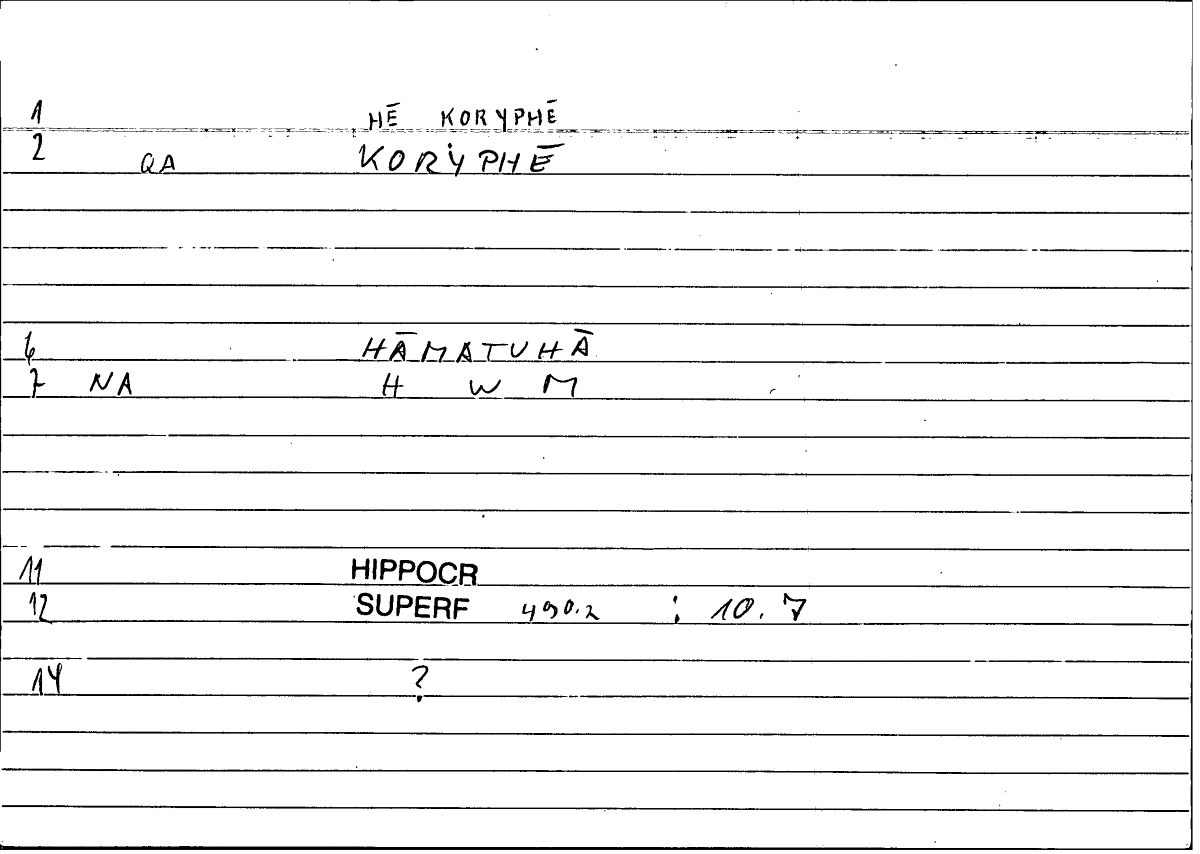 1 HĒ KORYPHĒ
2 QA KORYPHĒ
6 HĀMATUHĀ
7 NA H W M
11 HIPPOCR
12 SUPERF 490.2 : 10.7
14 ?